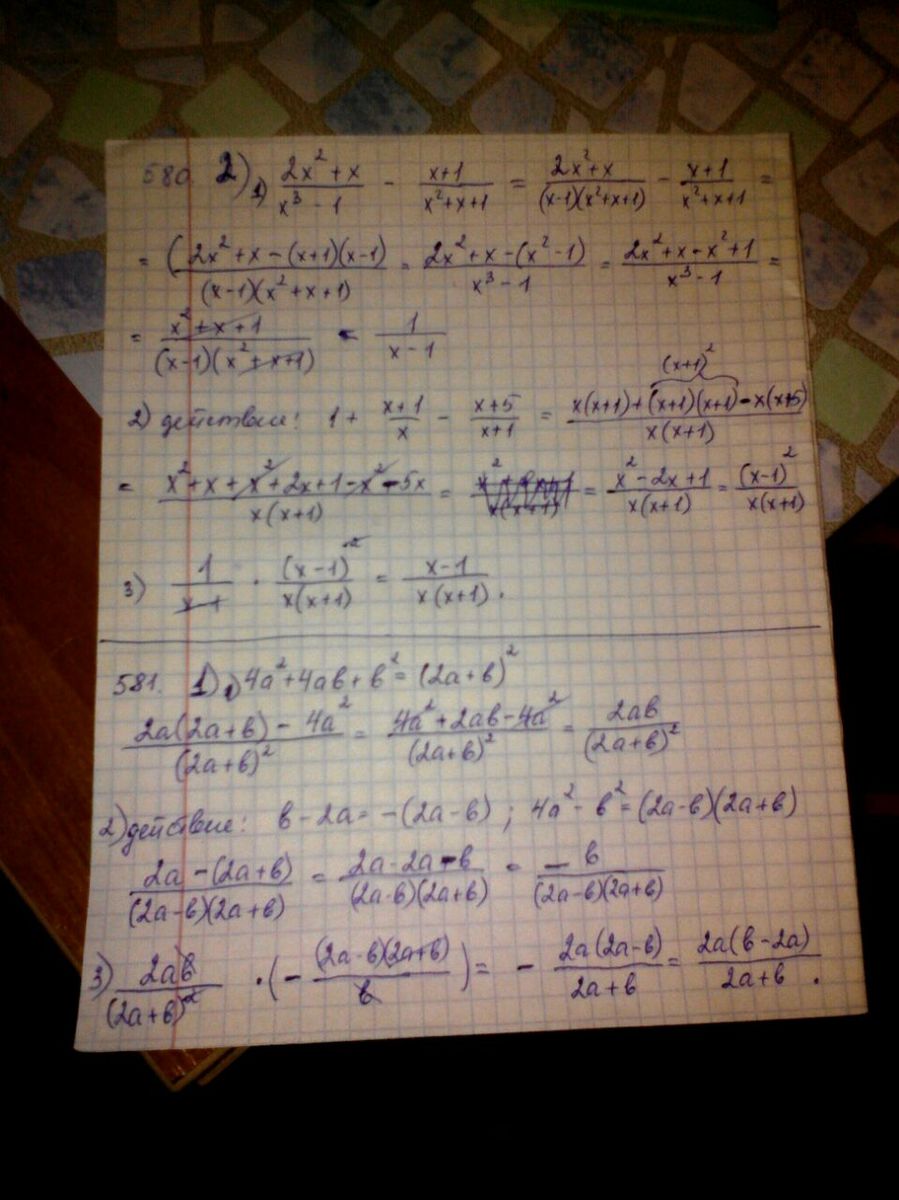 580 2) 1) (2x²+x)/(x³-1) - (x+1)/(x²+x+1) = (2x²+x)/((x-1)(x²+x+1)) - (x+1)/(x²+x+1) =
= (2x²+x-(x+1)(x-1))/((x-1)(x²+x+1)) = (2x²+x-(x²-1))/(x³-1) = (2x²+x-x²+1)/(x³-1) =
= (x²+x+1)/((x-1)(x²+x+1)) = 1/(x-1)
(x+1)²
2) действие: 1 + (x+1)/x - (x+5)/(x+1) = (x(x+1)+(x+1)(x+1)-x(x+5))/(x(x+1))
= (x²+x+x²+2x+1-x²-5x)/(x(x+1)) = = (x²-2x+1)/(x(x+1)) = (x-1)²/(x(x+1))
3) 1/(x-1) · (x-1)²/(x(x+1)) = (x-1)/(x(x+1)).
581. 1) 1) 4a²+4ab+b² = (2a+b)²
(2a(2a+b)-4a²)/(2a+b)² = (4a²+2ab-4a²)/(2a+b)² = 2ab/(2a+b)²
2) действие: b-2a = -(2a-b); 4a²-b² = (2a-b)(2a+b)
(2a-(2a+b))/((2a-b)(2a+b)) = (2a-2a-b)/((2a-b)(2a+b)) = -b/((2a-b)(2a+b))
3) 2ab/(2a+b)² · (-(2a-b)(2a+b)/b) = - 2a(2a-b)/(2a+b) = 2a(b-2a)/(2a+b).